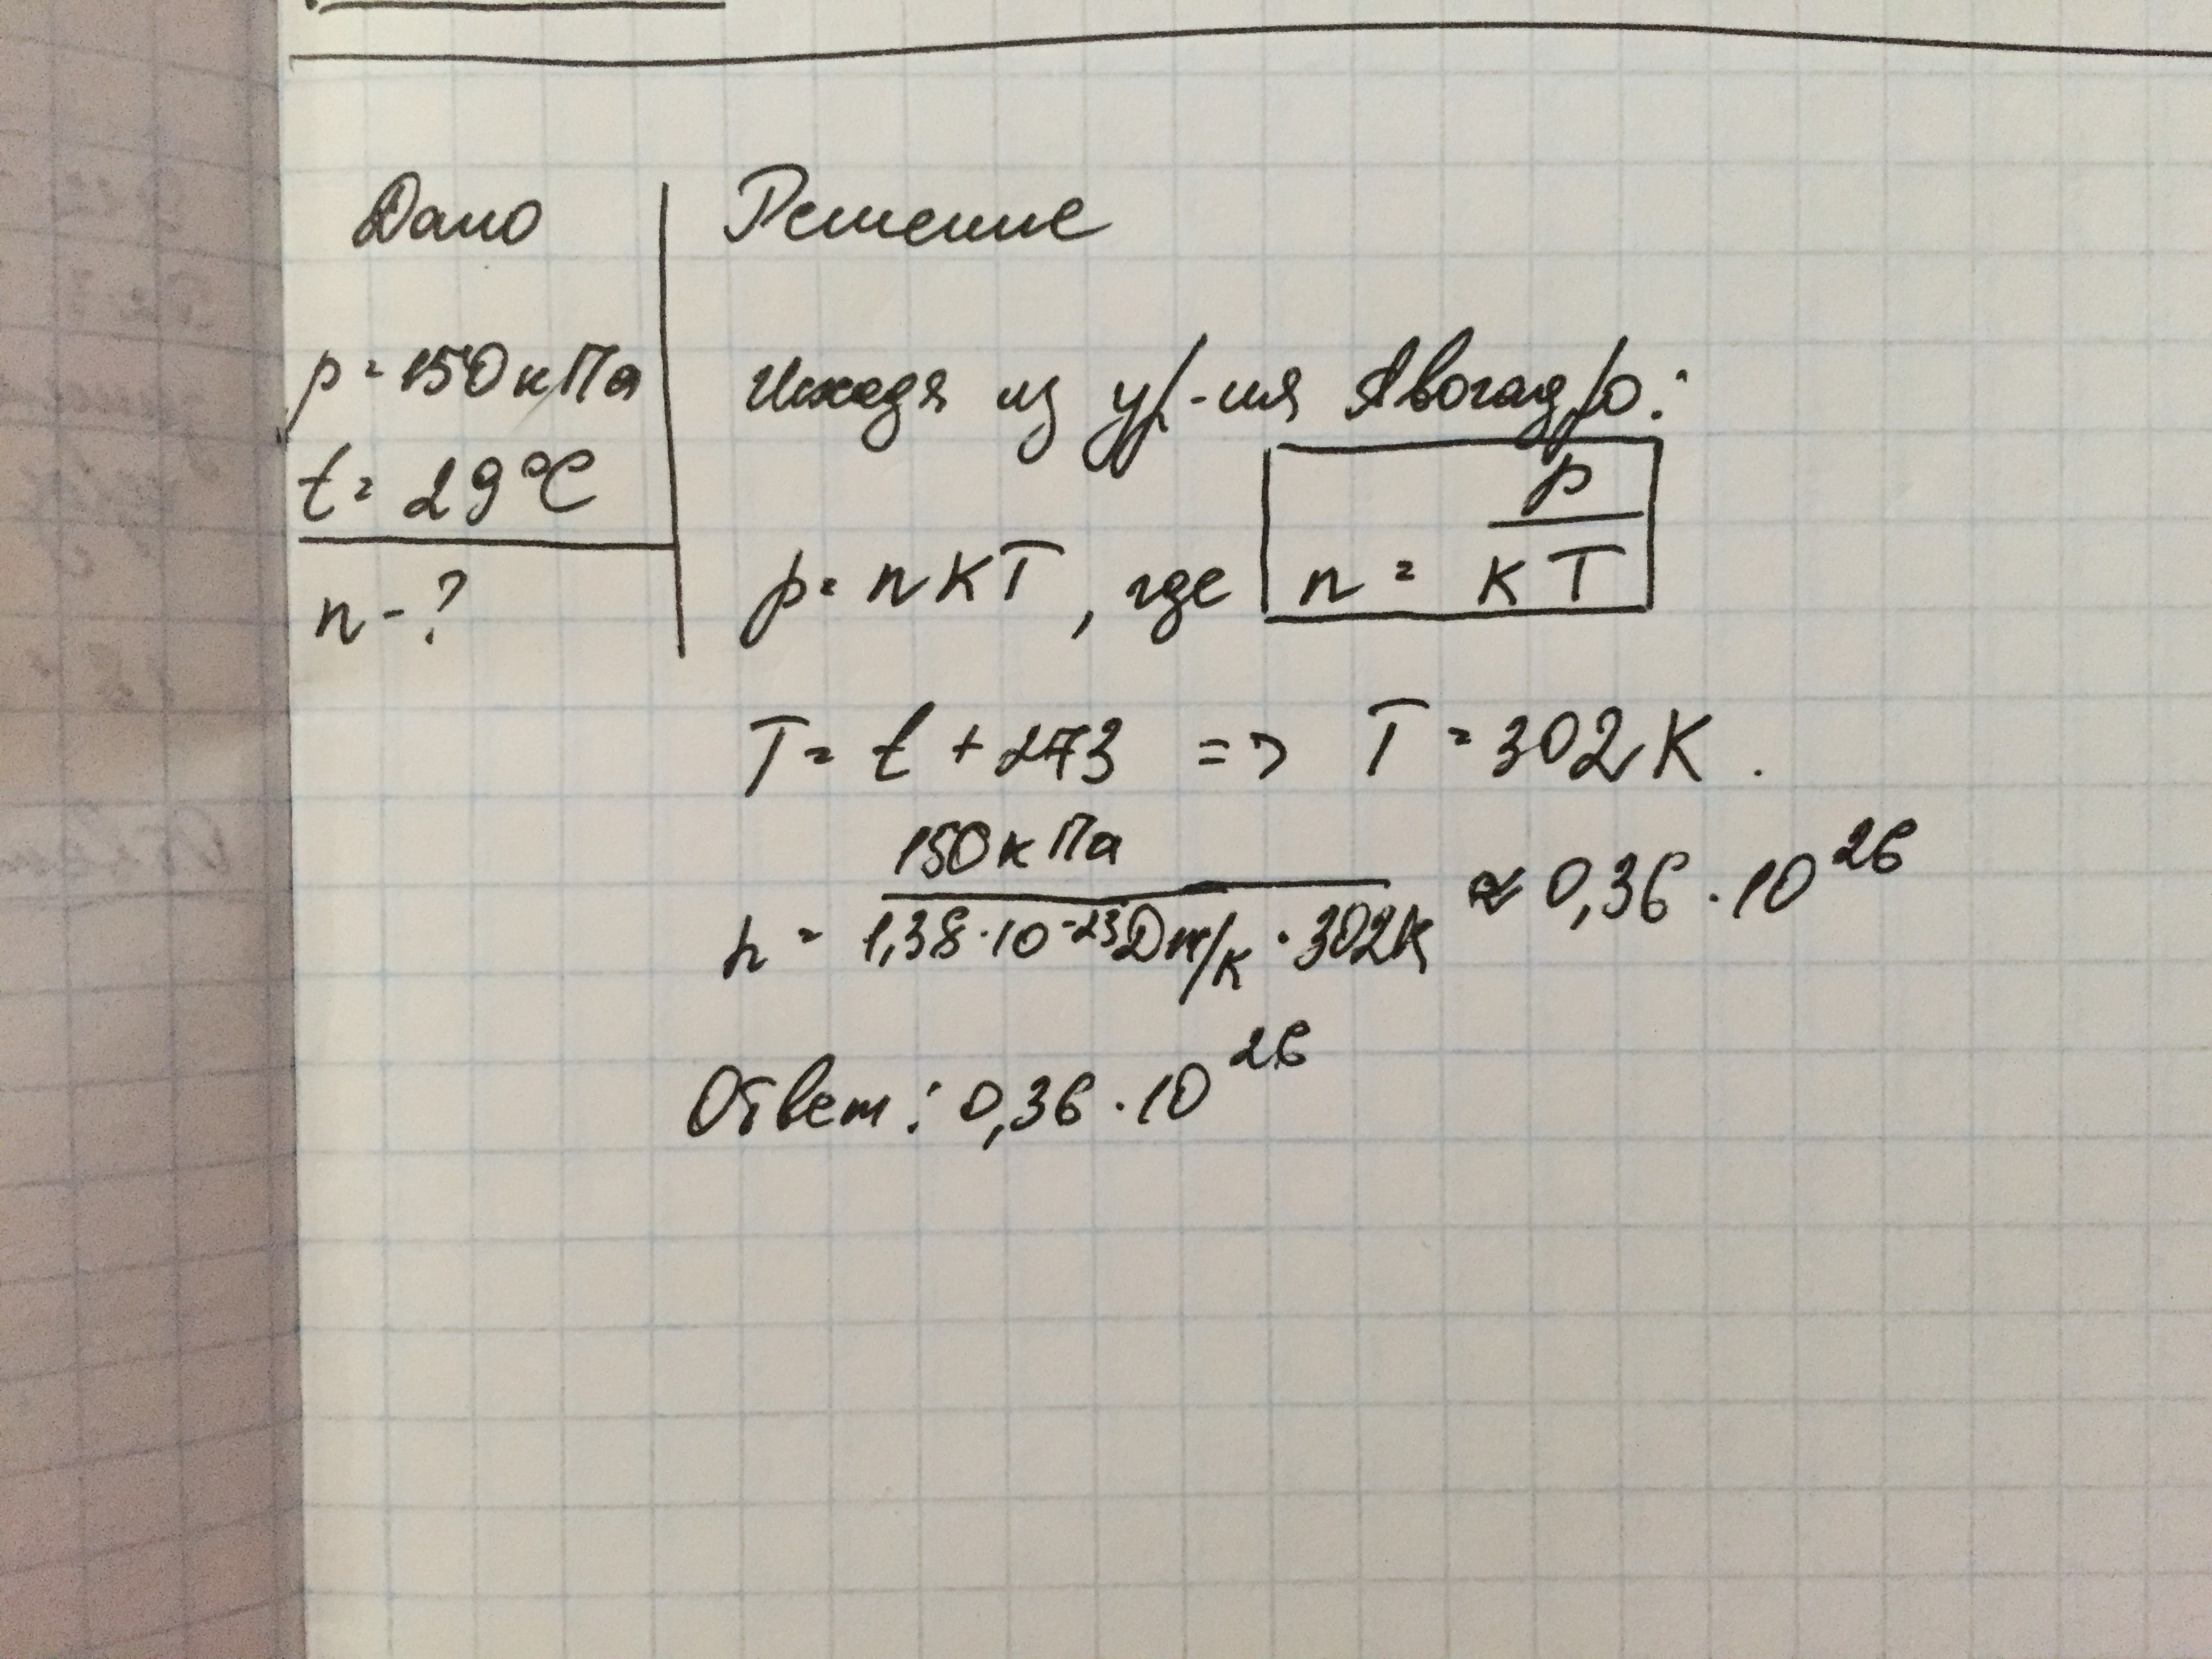 Дано
p=150кПа
t=29°C
n-?
Решение
Исходя из ур-ия Авогадро:
p=nkT, где n = p/kT
T=t+273 => T=302K.
n = 150кПа/1,38·10^-23Дж/К·302К ≈ 0,36·10^26
Ответ: 0,36·10^26